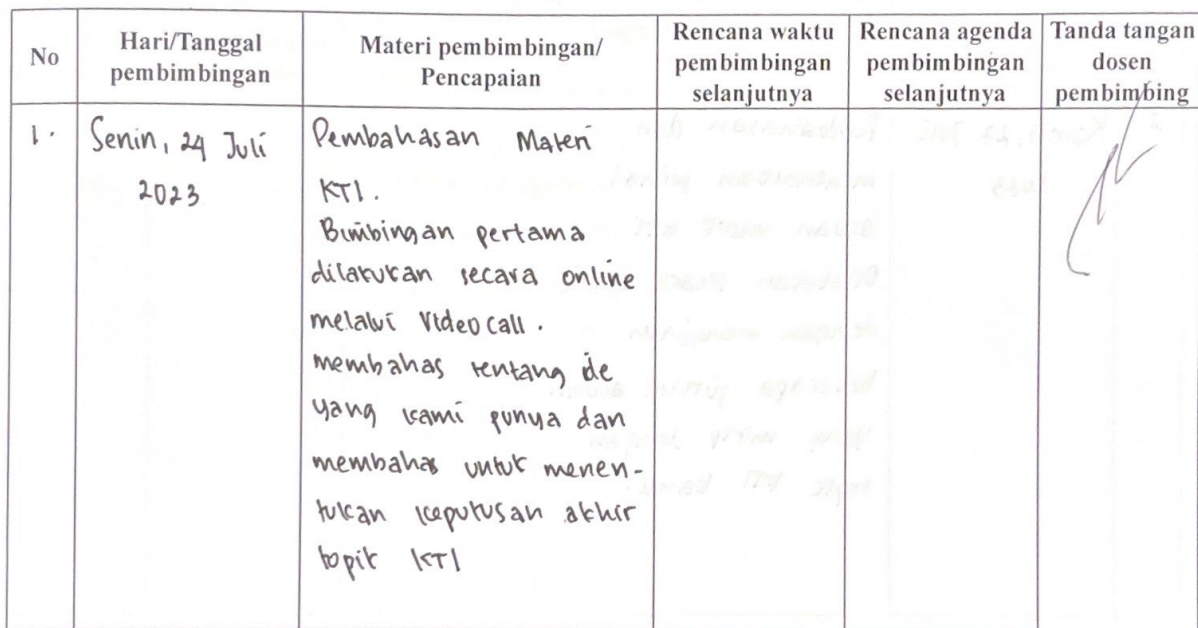 No
Hari/Tanggal
pembimbingan
Materi pembimbingan/
Pencapaian
Rencana waktu
pembimbingan
selanjutnya
Rencana agenda
pembimbingan
selanjutnya
Tanda tangan
dosen
pembimbing
1.
Senin, 24 Juli
2023
Pembahasan Materi
KTI.
Bimbingan pertama
dilakukan secara online
melalui Videocall.
membahas tentang ide
yang kami punya dan
membahas untuk menen-
tukan keputusan akhir
topik KTI